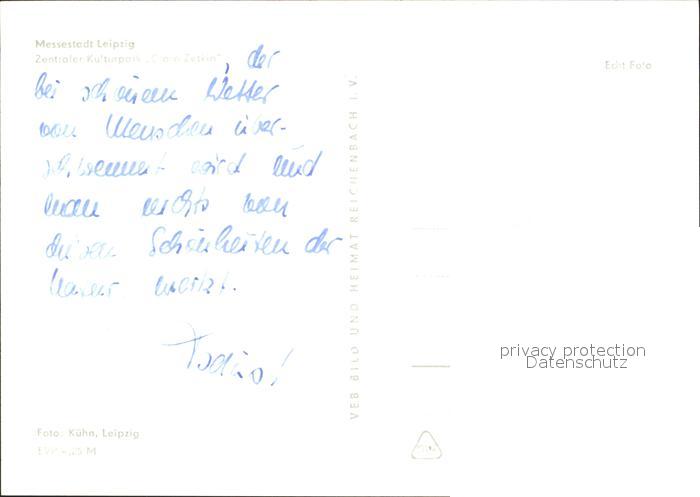 Messestadt Leipzig
Zentraler Kulturpark „Clara Zetkin"
, der
bei schönem Wetter
von Menschen über-
schwemmt wird und
man nichts von
diesen Schönheiten der
Natur merkt.
Tschüs!
Foto: Kühn, Leipzig
EVP -,25 M
VEB BILD UND HEIMAT REICHENBACH I. V.
Echt Foto
privacy protection
Datenschutz